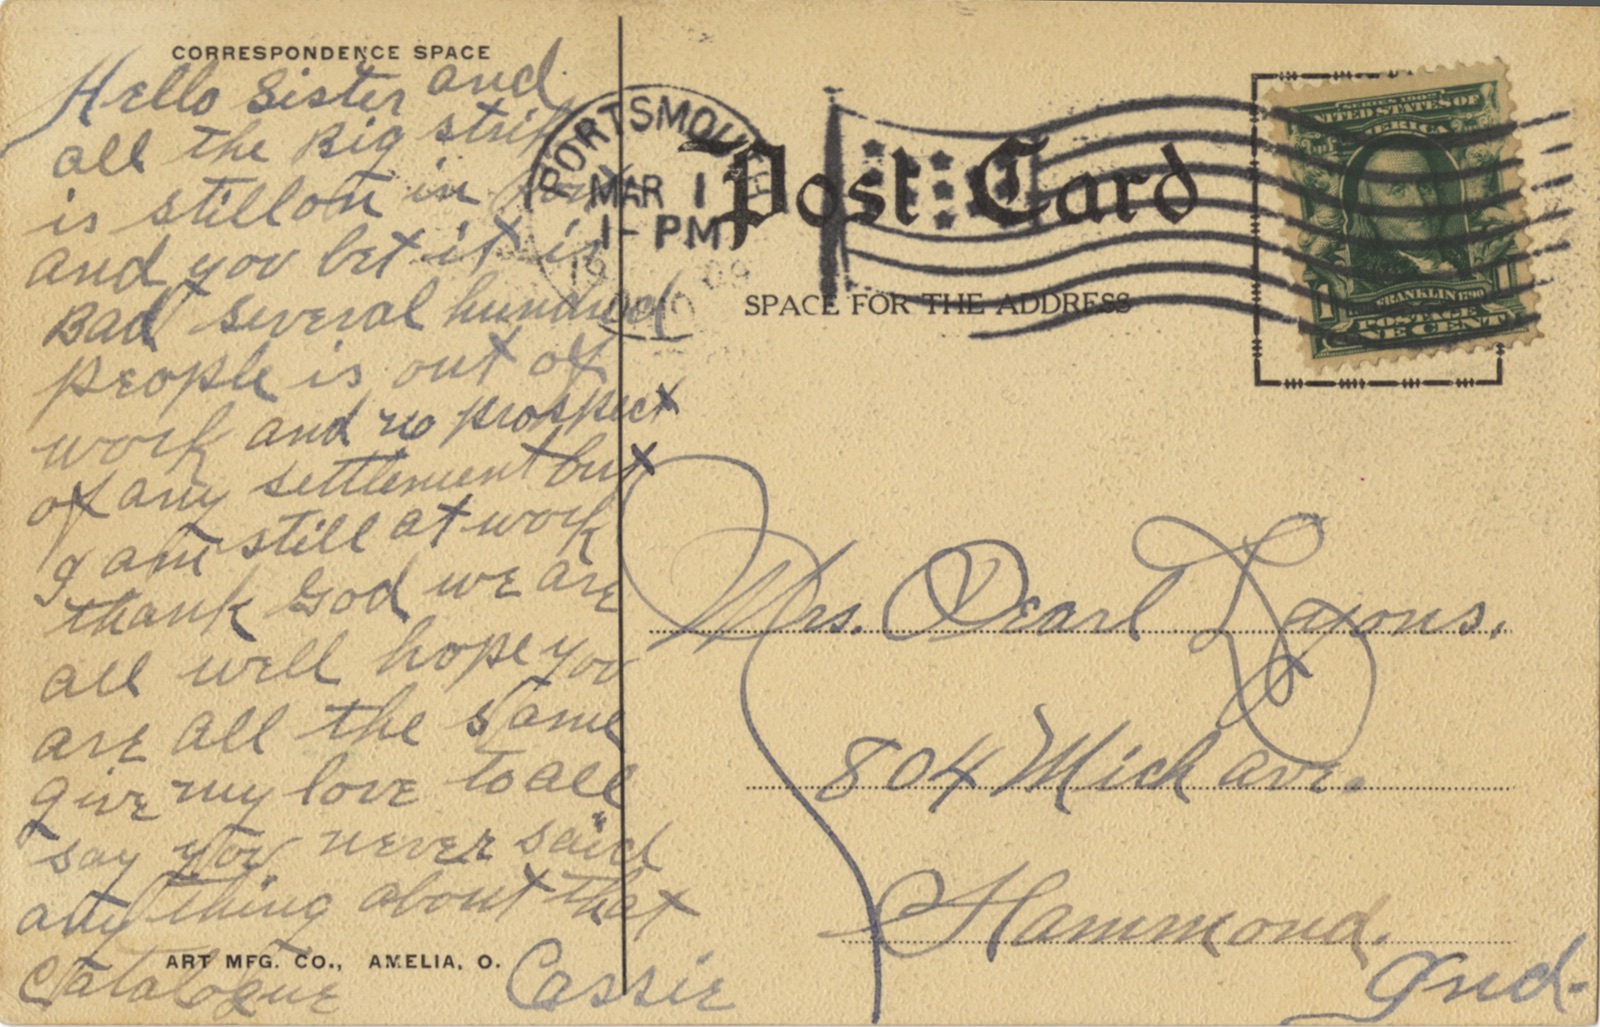 CORRESPONDENCE SPACE
Hello Sister and
all the Big strike
is still on in
and you bet it is
Bad several hundred
people is out of
work and no prospect
of any settlement but
I am still at work
thank God we are
all well hope you
are all the same
give my love to all
say you never said
any thing about that
Catalogue Cassie
ART MFG. CO., AMELIA, O.
PORTSMOUTH
MAR 1
1-PM
Post Card
SPACE FOR THE ADDRESS
SERIES 1902
UNITED STATES OF
AMERICA
FRANKLIN 1790
1 1
POSTAGE
ONE CENT
Mrs. Pearl Lyons.
804 Mich ave.
Hammond.
Ind.